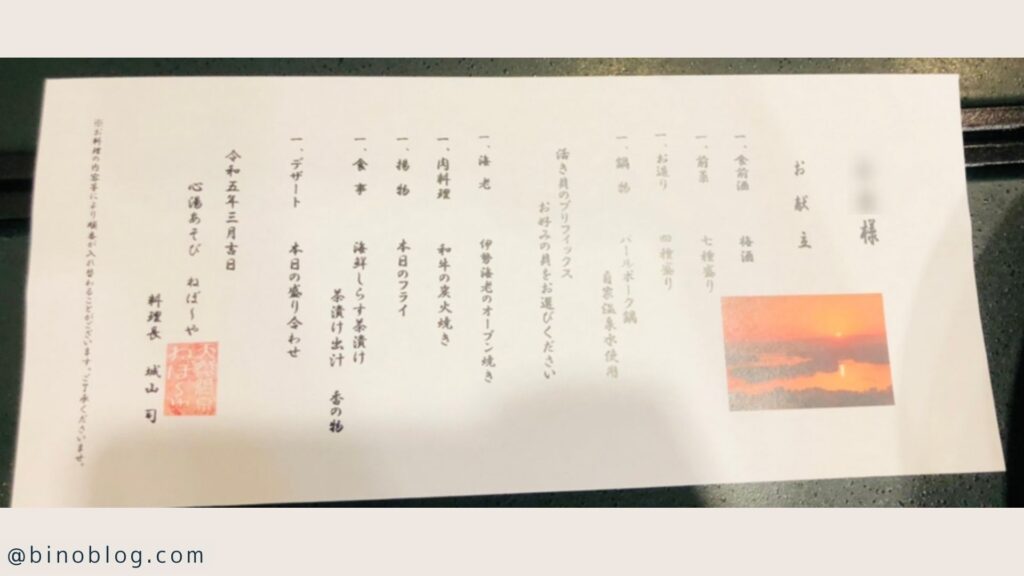 様
お献立
一、食前酒 梅酒
一、前菜 七種盛り
一、お造り 四種盛り
一、鍋物 パールポーク鍋
自家温泉水使用
活き貝のプリフィックス
お好みの貝をお選びください
一、海老 伊勢海老のオーブン焼き
一、肉料理 和牛の炭火焼き
一、揚物 本日のフライ
一、食事 海鮮しらす茶漬け
茶漬け出汁 香の物
一、デザート 本日の盛り合わせ
令和五年三月吉日
心湯あそび ねぼ〜や
料理長 城山 司
※お料理の内容等により順番が入れ替わることがございます。ご了承くださいませ。
@binoblog.com